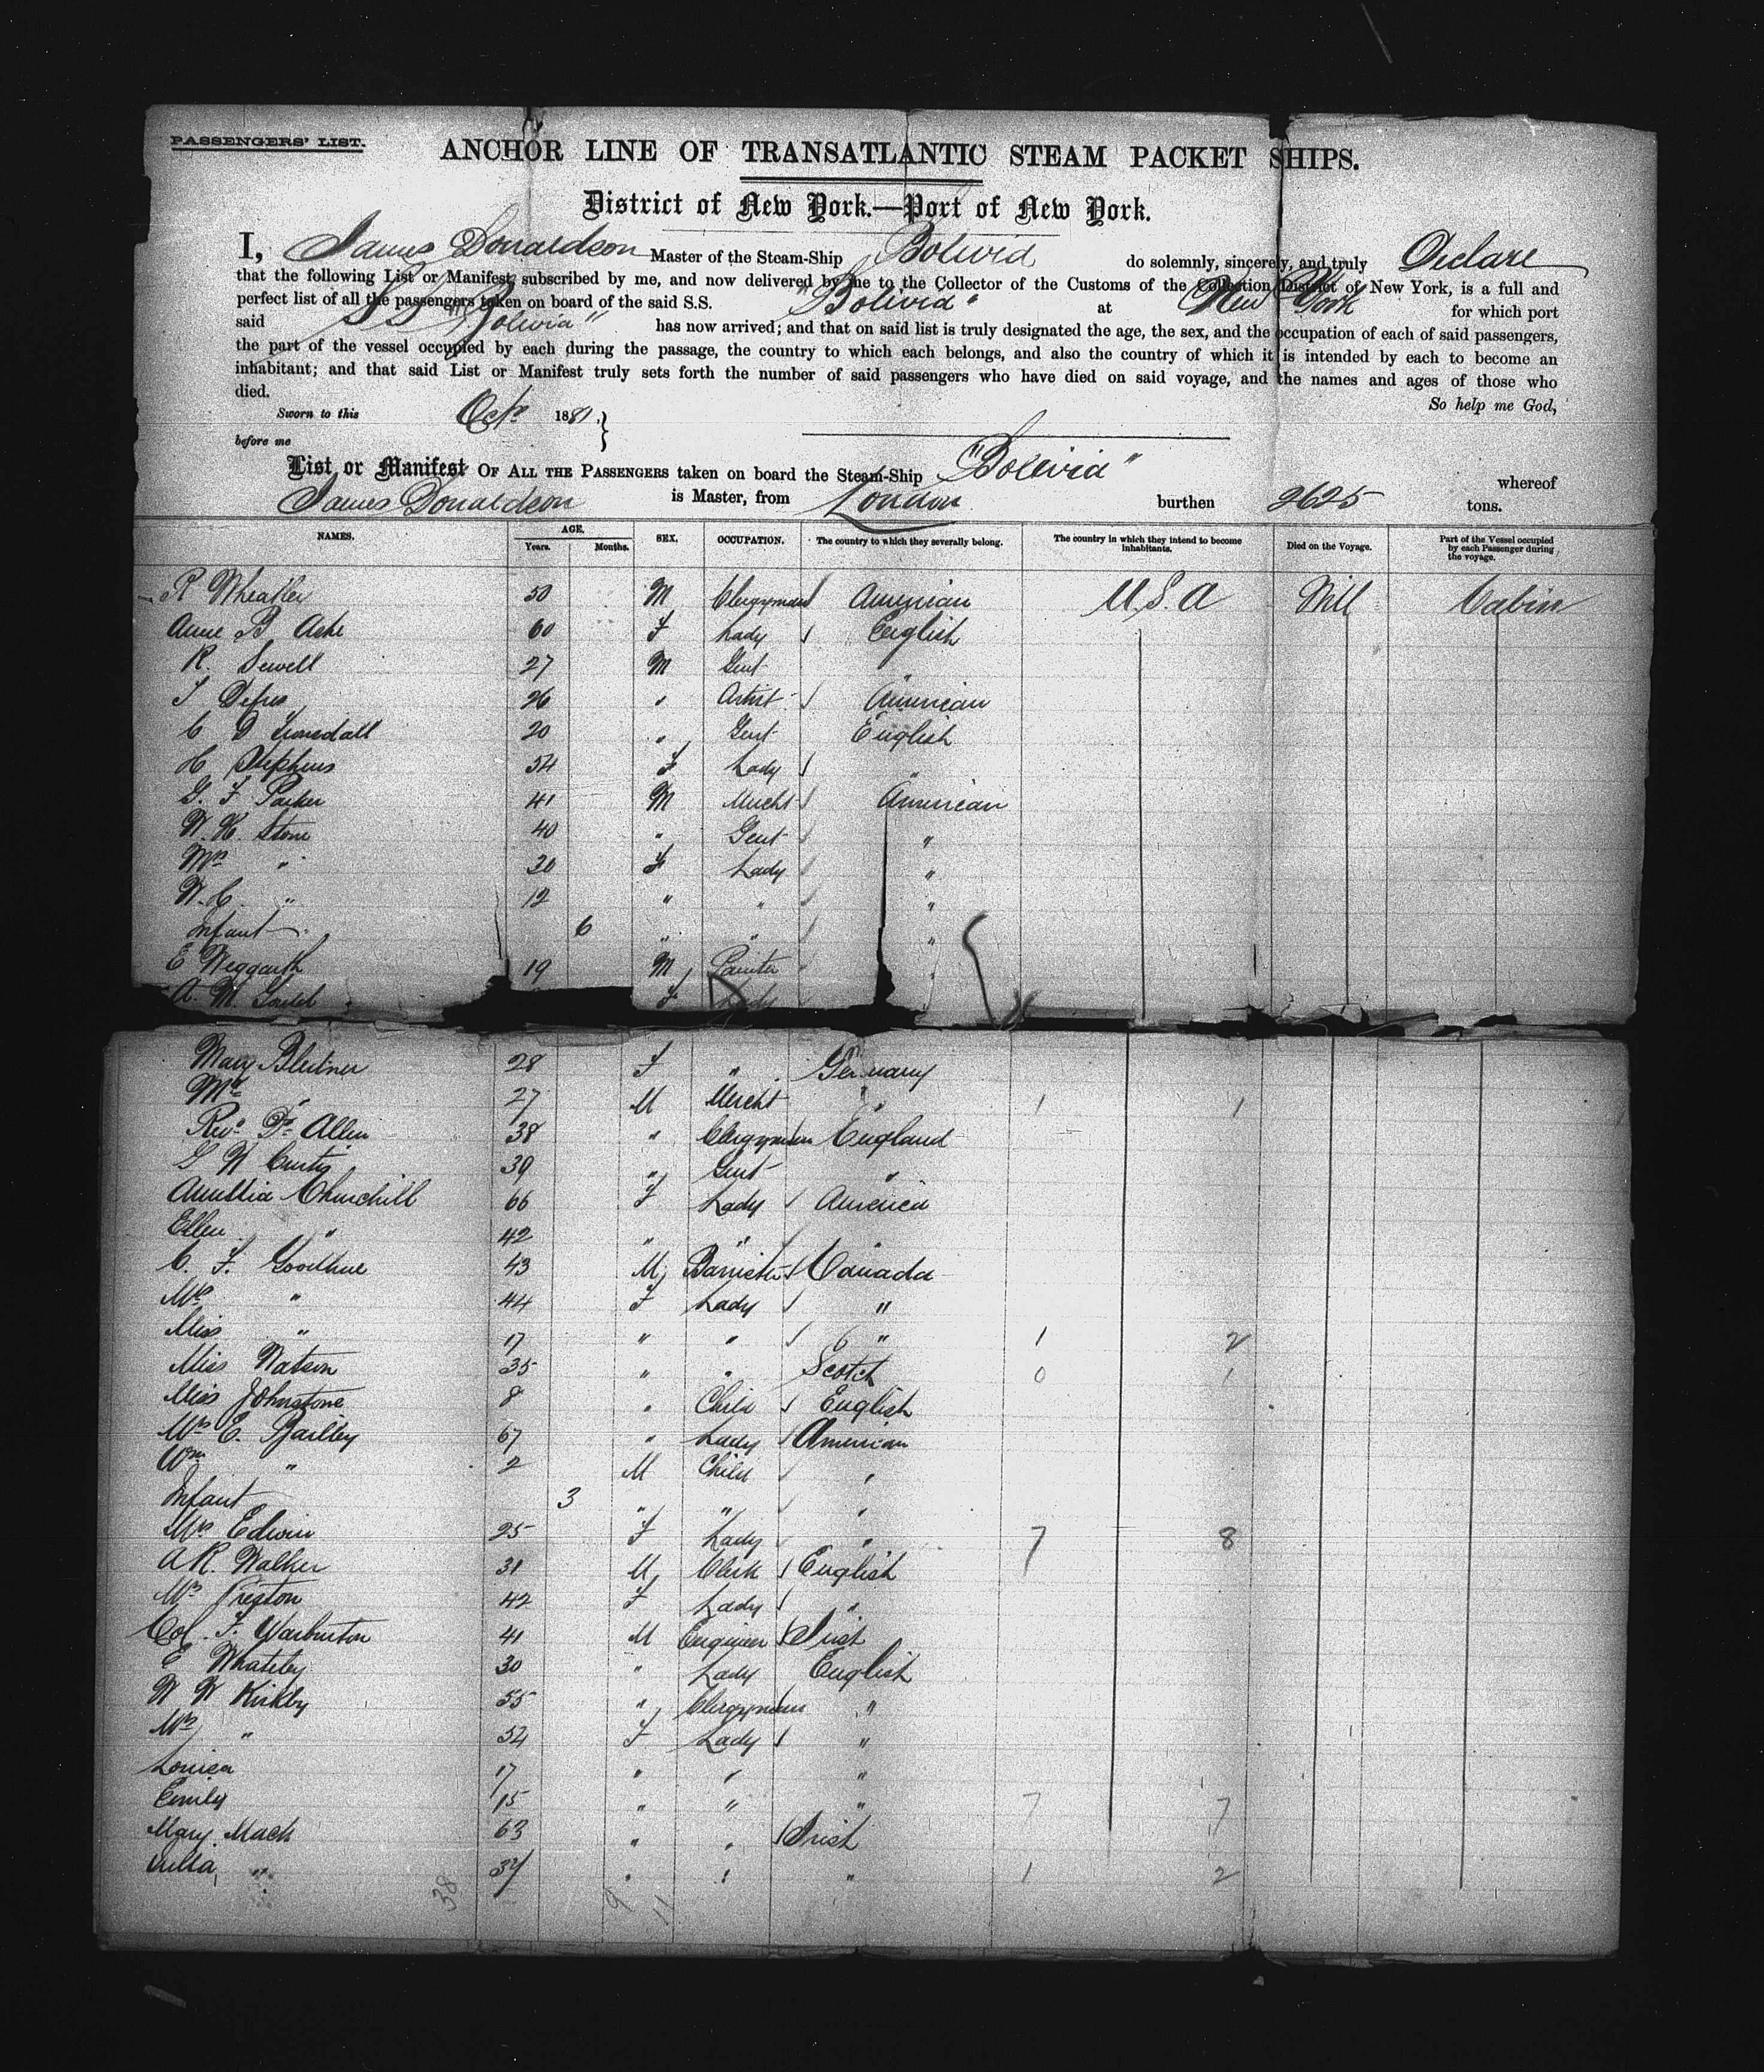 PASSENGERS' LIST.
ANCHOR LINE OF TRANSATLANTIC STEAM PACKET SHIPS.
District of New York.—Port of New York.
I, James Donaldson Master of the Steam-Ship Bolivia do solemnly, sincerely, and truly Declare
that the following List or Manifest subscribed by me, and now delivered by me to the Collector of the Customs of the Collection District of New York, is a full and
perfect list of all the passengers taken on board of the said S.S. "Bolivia" at New York for which port
said SS "Bolivia" has now arrived; and that on said list is truly designated the age, the sex, and the occupation of each of said passengers,
the part of the vessel occupied by each during the passage, the country to which each belongs, and also the country of which it is intended by each to become an
inhabitant; and that said List or Manifest truly sets forth the number of said passengers who have died on said voyage, and the names and ages of those who
died.
So help me God,
Sworn to this Oct 1881. }
before me
List or Manifest OF ALL THE PASSENGERS taken on board the Steam-Ship "Bolivia" whereof
James Donaldson is Master, from London burthen 2625 tons.
NAMES. AGE. Years. Months. SEX. OCCUPATION. The country to which they severally belong. The country in which they intend to become inhabitants. Died on the Voyage. Part of the Vessel occupied by each Passenger during the voyage.
R Wheatley 50 M Clergyman American U.S.A Nill Cabin
Anne B Ashe 60 F Lady English
R. Sewell 27 M Gent "
26 " Artist American
C D 20 " Gent English
H Stephens 54 F Lady "
G. F. Parker 41 M Mercht American
W. H. Stone 40 " Gent "
Mrs " 30 F Lady "
W. C. " 12 " " "
Infant 6 " " "
E 19 M Painter "
A. M. F Lady
Mary Bleitner 28 F " Germany
Mr " 27 M Mercht " 1 1
Revd Allen 38 " Clergyman England
G W Curtis 39 " Gent "
Amellia Churchill 66 F Lady America
Ellen " 42 " " "
C. F. Goodhue 43 M Barrister Canada
Mrs " 44 F Lady "
Miss " 17 " " " 1 2
Miss Watson 35 " " Scotch 0 1
Miss Johnstone 8 " Child English
Mrs E. Bailey 67 " Lady American
Wm " 2 M Child "
Infant 3 " " "
Mrs Edwin 25 F Lady " 7 8
A R. Walker 31 M Clerk English
Mrs Preston 42 F Lady "
Col. F. Warburton 41 M Engineer Irish
E Whateley 30 " Lady English
W W Kirkby 55 " Clergyman "
Mrs " 52 F Lady "
Louisa 17 " " "
Emily 15 " " " 7 7
Mary Mack 63 " " Irish
" 37 " " " 1 2
38 9 11